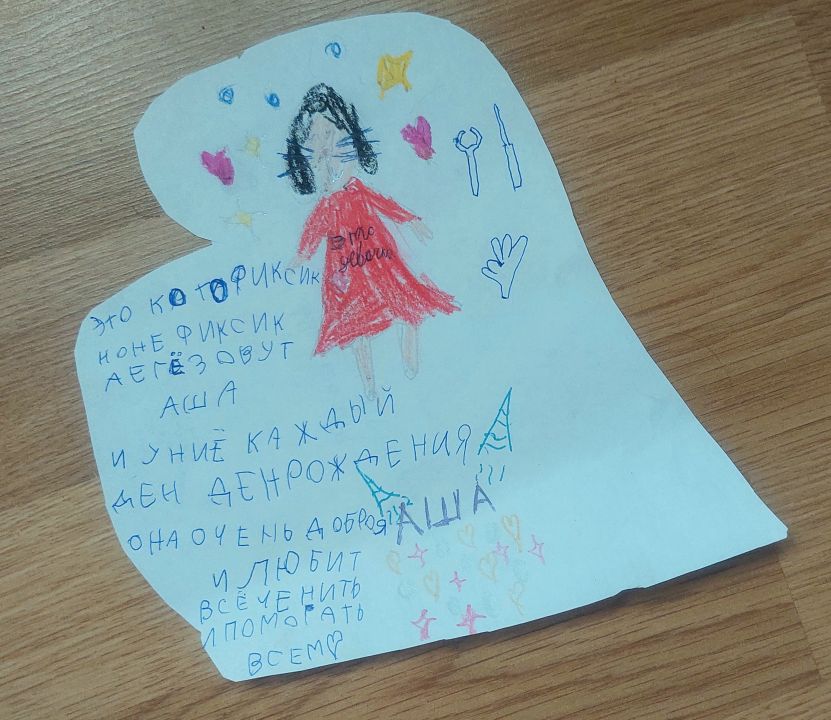 это
девочка
ЭТО КОТОФИКСИК
НОНЕ ФИКСИК
АЕГЁЗОВУТ
АША
И УНИЁ КАЖДЫЙ
ДЕН ДЕНРОЖДЕНИЯ
ОНА ОЧЕНЬ ДОБРОЯ
АША
И ЛЮБИТ
ВСЁЧЕНИТЬ
И ПОМОГАТЬ
ВСЕМ